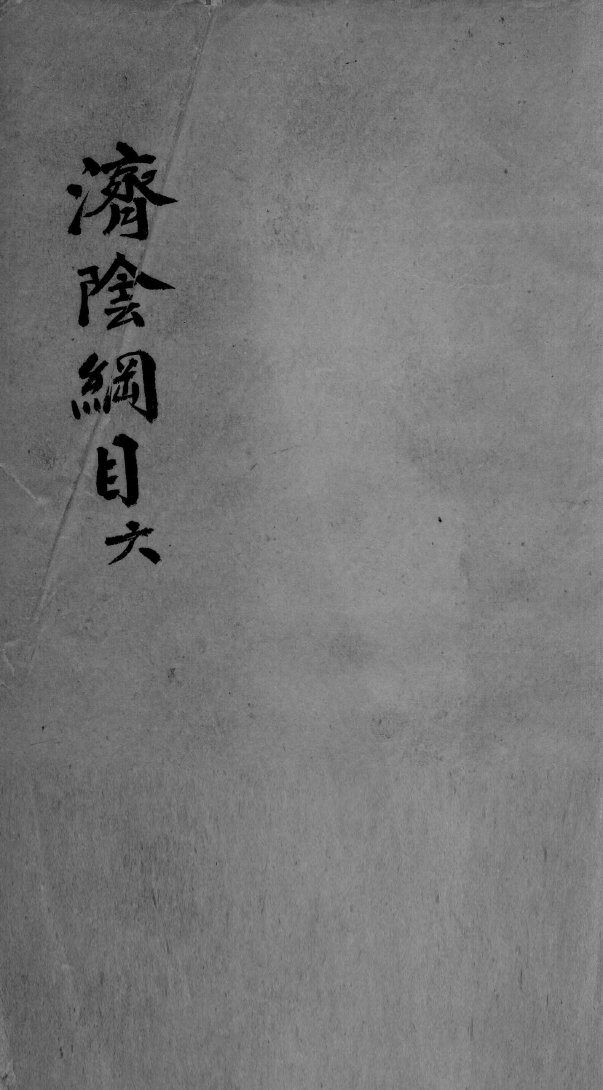 濟陰綱目六